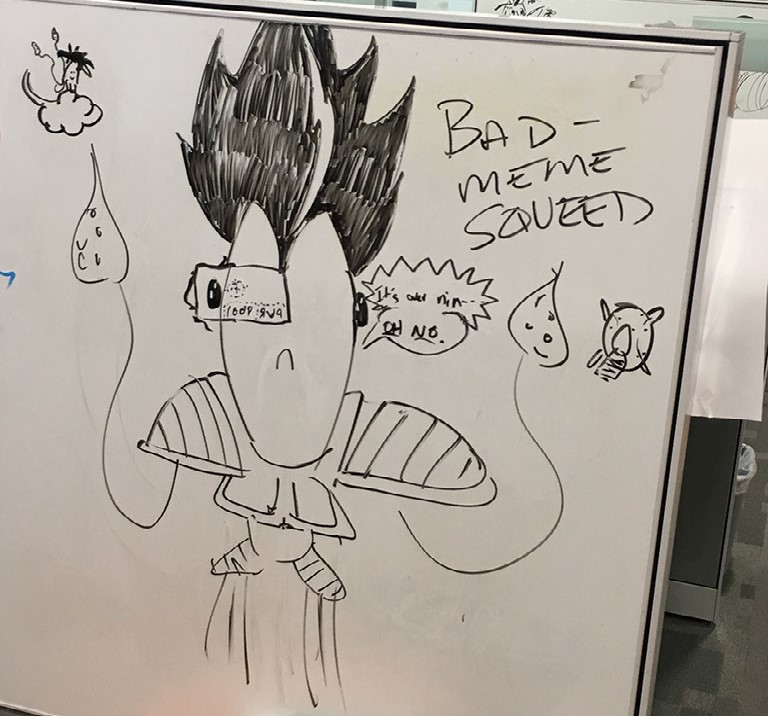 BAD-
MEME
SQUEED
It's over nin--
OH NO.